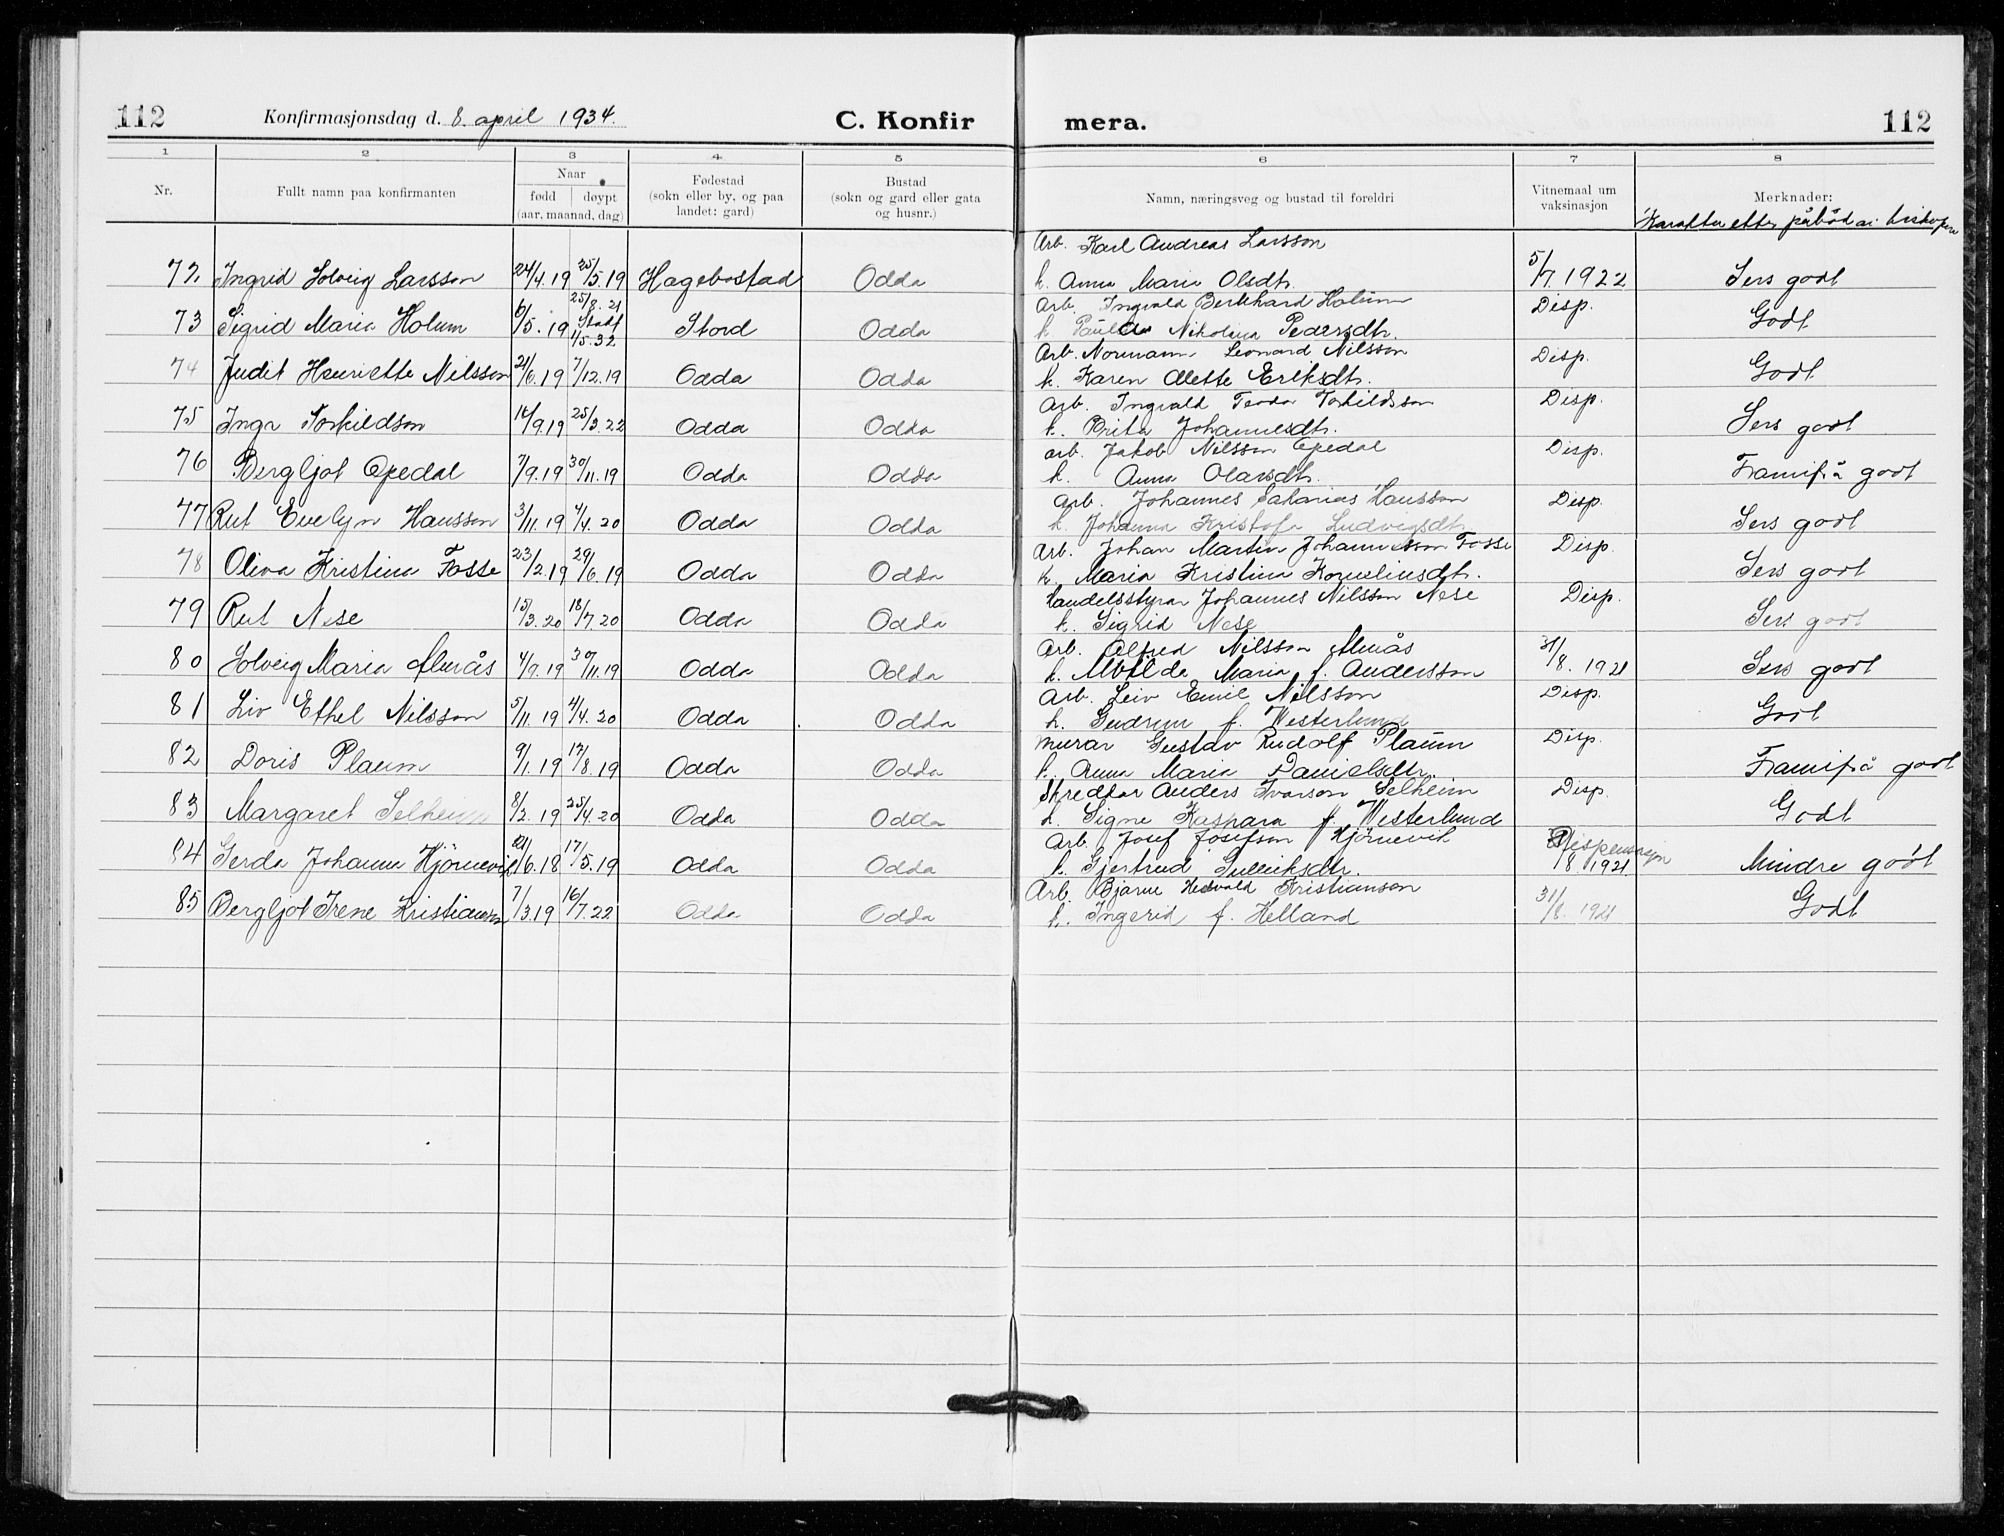 112 Konfirmasjonsdag d. 8. april 1934. C. Konfir mera. 112
1 2 3 4 5 6 7 8
Nr. Fullt namn paa konfirmanten Naar Fødestad Bustad Namn, næringsveg og bustad til foreldri Vitnemaal um Merknader:
fødd døypt (sokn eller by, og paa (sokn og gard eller gata vaksinasjon Karakter etter påbod av biskopen
(aar, maanad, dag) landet: gard) og husnr.)
Arb. Karl Andreas Larsson
72 Ingrid Solveig Larsson 24/4.19 25/5.19 Hagebostad Odda k. Anna Maria Olsdtr. 5/7.1922 Sers godt
25/8.21 Arb. Ingvald Bernhard Holum Disp.
73 Sigrid Maria Holum 6/5.19 Stadf 1/5.32 Stord Odda k. Paula Nikolina Pedersdtr. Godt
Arb. Normann Leonard Nilsson Disp.
74 Judit Henriette Nilsson 21/6.19 7/12.19 Odda Odda k. Karen Olette Eriksdtr. Godt
Arb. Ingvald Teodor Torkildsson Disp.
75 Inga Torkildson 14/9.19 25/3.22 Odda Odda k. Brita Johannesdtr. Sers godt
arb. Jakob Nilsson Opedal Disp.
76 Bergljot Opedal 7/9.19 30/11.19 Odda Odda k. Anna Olavsdtr. Framifrå godt
Arb. Johannes Sakarias Hansson Disp.
77 Rut Evelyn Hansson 3/11.19 4/4.20 Odda Odda k. Johanna Kristofa Ludvigsdtr. Sers godt
Arb. Johan Martin Johannesson Fosse Disp.
78 Oliva Kristina Fosse 23/2.19 29/6.19 Odda Odda k. Maria Kristina Korneliusdtr. Sers godt
Handelsstyrar Johannes Nilsson Nese Disp.
79 Rut Nese 15/3.20 18/7.20 Odda Odda k. Sigrid Nese Sers godt
Arb. Alfred Nilsson Almås
80 Solveig Maria Almås 4/9.19 30/11.19 Odda Odda k. Alvilde Maria f. Andersson 31/8.1921 Sers godt
Arb. Leiv Emil Nilsson Disp.
81 Liv Ethel Nilsson 5/11.19 4/4.20 Odda Odda k. Gudrun f. Westerlund Godt
murar Gustav Rudolf Plaum Disp.
82 Doris Plaum 9/1.19 17/8.19 Odda Odda k. Anna Maria Danielsdtr. Framifrå godt
Skreddar Anders Ivarson Selheim Disp.
83 Margaret Selheim 8/2.19 25/4.20 Odda Odda k. Signe Kaspara f. Westerlund Godt
Arb. Josef Josefson Hjörnevik Dispensasjon
84 Gerda Johanna Hjörnevik 21/6.18 17/5.19 Odda Odda k. Gjertrud Sulleiksdtr. /8.1921 Mindre godt
Arb. Bjarne Kristianson
85 Bergljot Irene Kristianson 7/3.19 16/7.22 Odda Odda k. Ingerid f. Helland 31/8.1921 Godt